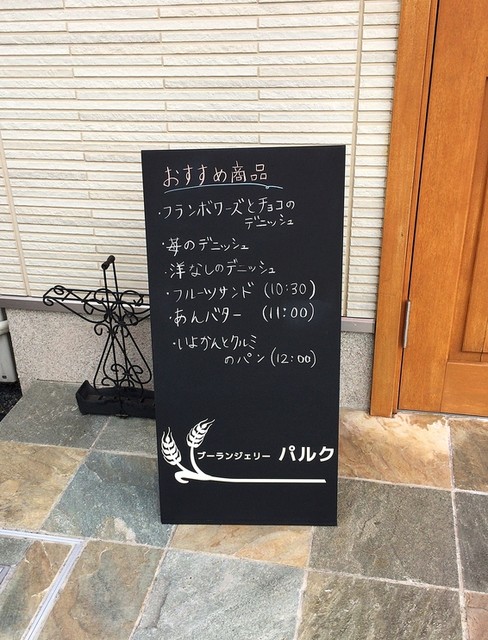 おすすめ商品
・フランボワーズとチョコの
デニッシュ
・苺のデニッシュ
・洋なしのデニッシュ
・フルーツサンド (10:30)
・あんバター (11:00)
・いよかんとクルミ
のパン (12:00)
ブーランジェリー パルク